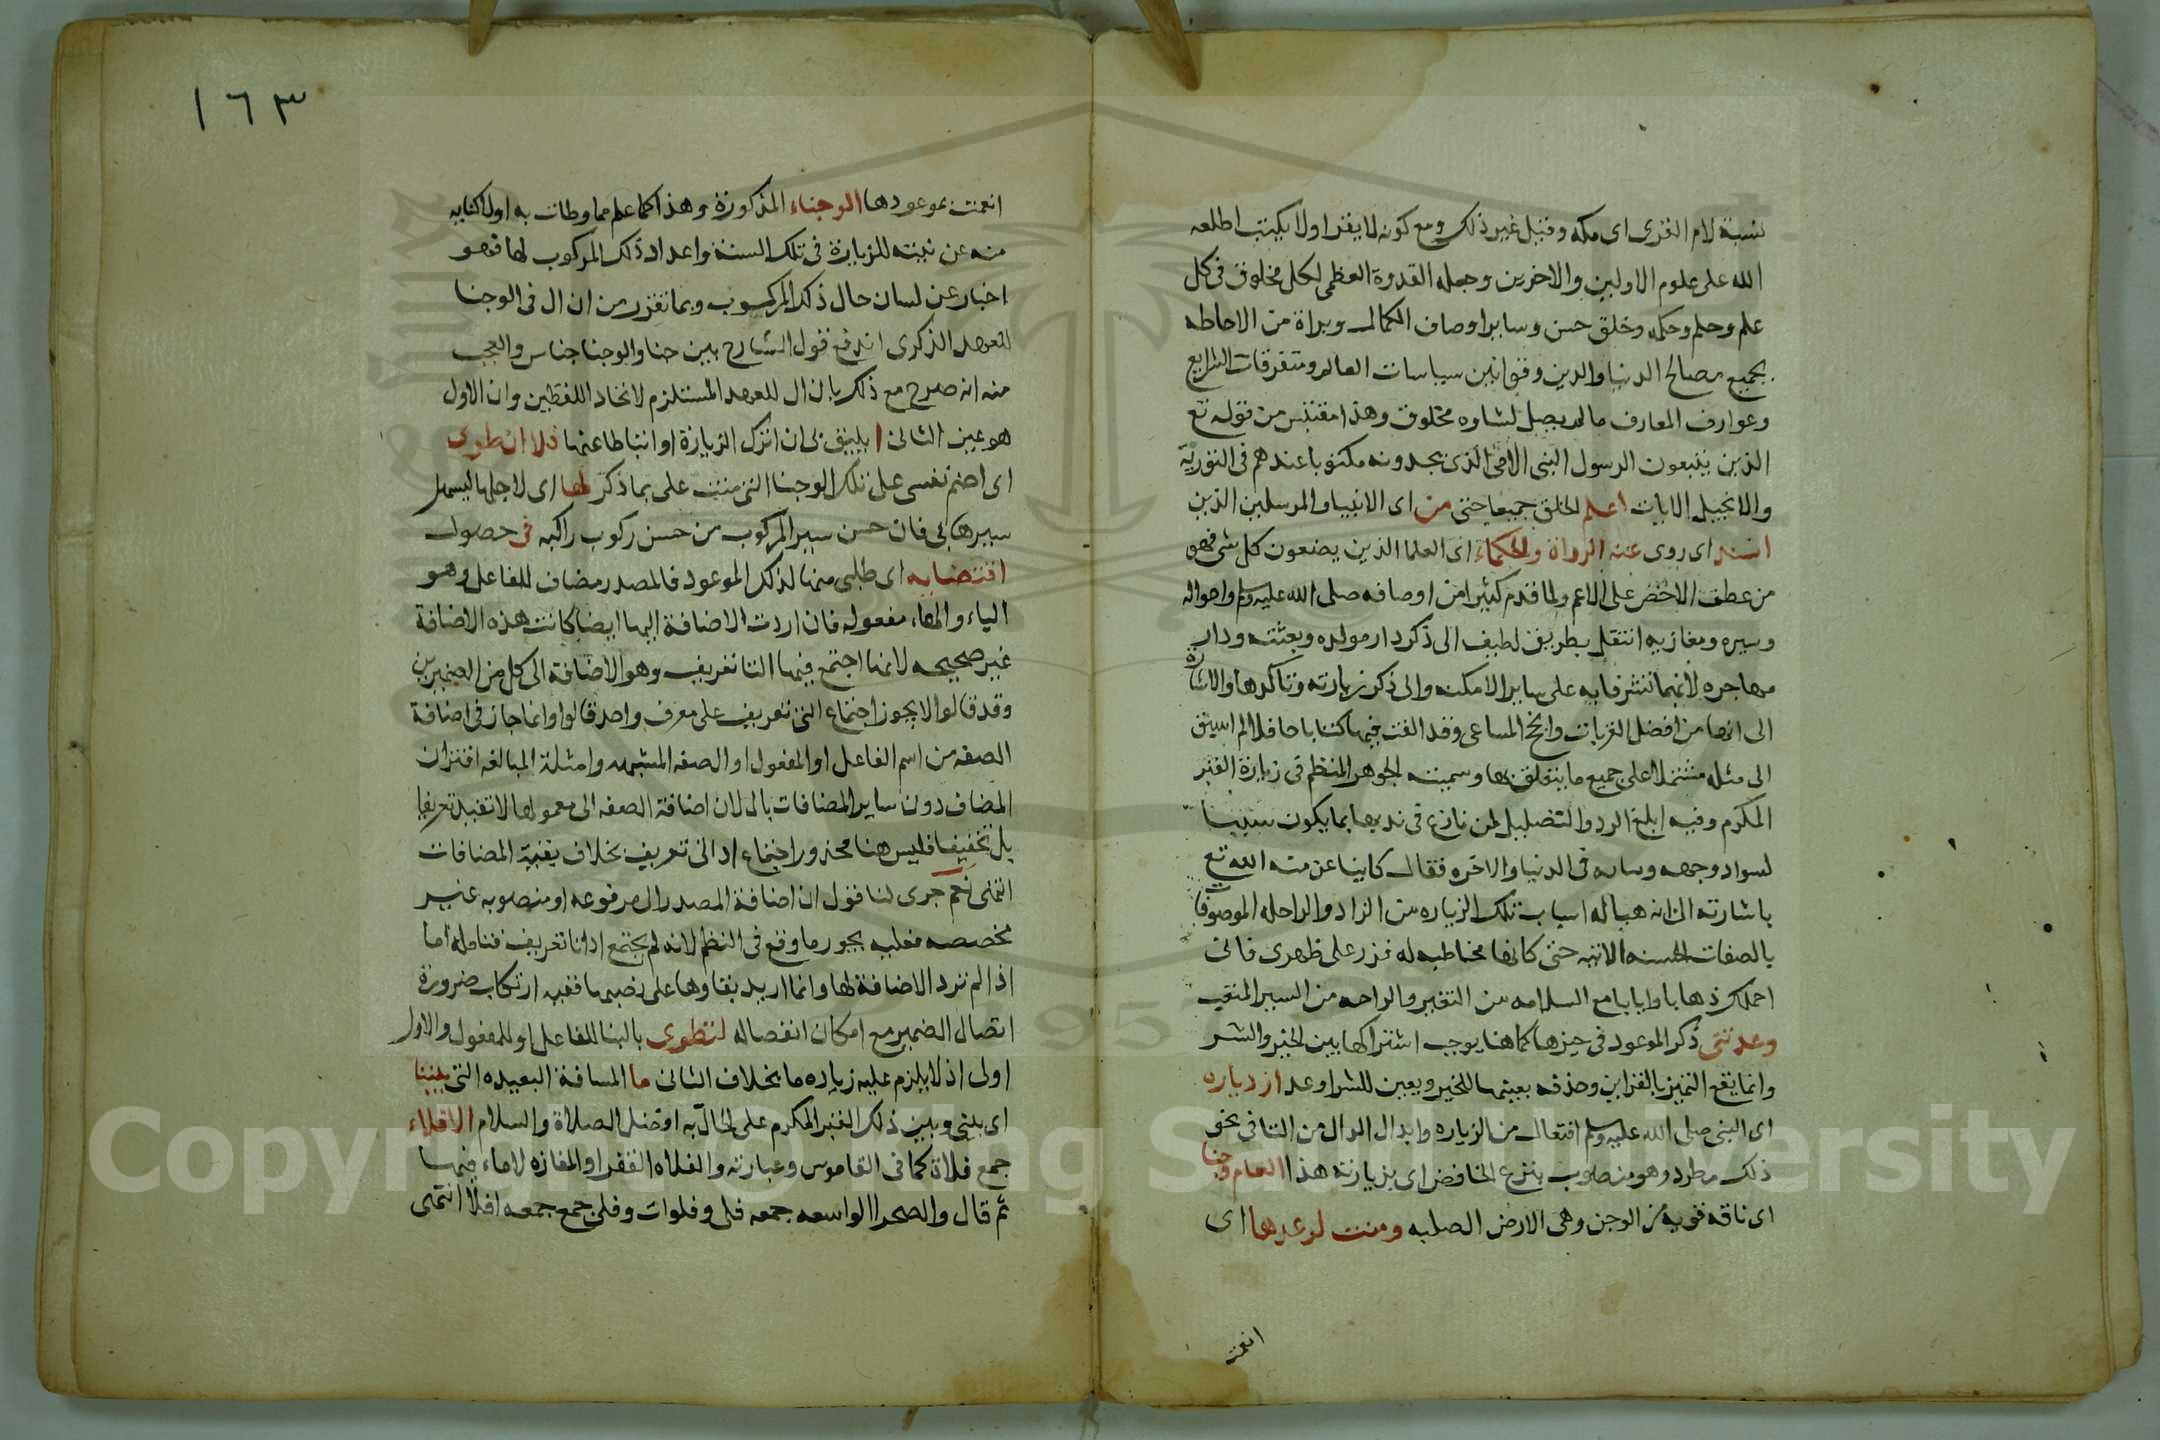 نسبة لام القرى اى مكه وقيل غير ذلك ومع كونه لا يقرا ولا يكتب اطلعه
الله على علوم الاولين والاخرين وجعله القدوة العظمى لكل مخلوق فى كل
علم وحلم وحكمه وخلق حسن وساير اوصاف الكمال وبراة من الاحاطه
بجميع مصالح الدنيا والدين وقوانين سياسات العالم ومتفرقات الشرايع
وعوارف المعارف ما لم يصل لشاوه مخلوق وهذا مقتبس من قوله تع
الذين يتبعون الرسول النبى الامى الذى يجدونه مكتوبا عندهم فى التورية
والانجيل الايات اعلم الخلق جميعا حتى من اى الانبيا والمرسلين الذين
اسند اى روى عنه الرواة والحكماء اى العلما الذين يضعون كل شى فهو
من عطف الاخص على الاعم ولما قدم كثيرا من اوصافه صلى الله عليه وسلم واحواله
وسيره ومغازيه انتقل بطريق لطيف الى ذكر دار مولده وبعثته ودار
مهاجره لانهما تشرفا به على ساير الامكنه والى ذكر زيارته وتاكدها والاشارة
الى انها من افضل القربات وانجح المساعى وقد الفت فيها كتابا حافلا لم اسبق
الى مثله مشتملا على جميع ما يتعلق بها وسميته الجوهر المنظم فى زيارة القبر
المكرم وفيه ابلغ الرد والتضليل لمن نازع فى ندبها بما يكون سببا
لسواد وجهه وساله فى الدنيا والاخره فقال كانيا عن منه الله تع
باشارته الى انه هيا له اسباب تلك الزياره من الزاد والراحله الموصوفة
بالصفات الحسنه الاتيه حتى كانها مخاطبه له فزر على ظهرى فانى
احملك ذهابا وايابا مع السلامه من التغير والراحه من السير المتعب
وعدتنى ذكر الموعود فى حيزها كما هنا يوجب اشتراكها بين الخير والشر
وانما يقع التميز بالقراين وحذفه يعينها للخير ويعين للشر اوعد ازدياره
اى النبى صلى الله عليه وسلم افتعال من الزياره وابدال الدال من التا فى نحو
ذلك مطرد وهو منصوب بنزع الخافض اى بزيارته هذا العام وجنا
اى ناقه قويه من الوجن وهى الارض الصلبه ومنت لوعدها اى
انعمت
١٦٣
انعمت بموعودها الوجناء المذكورة وهذا كما علم مما وطات به اول كنايه
منه عن نيته للزيارة فى تلك السنة واعداد ذلك المركوب لها فهو
اخبار عن لسان حال ذلك المركوب وبما تقرر من ان ال فى الوجنا
للعهد الذكرى اندفع قول الشارح بين حنا والوجنا جناس والعجب
منه انه صرح مع ذلك بان ال للعهد المستلزم لاتحاد اللفظين وان الاول
هو عين الثانى ا يليق بى ان اترك الزيارة او اتباطا عنها فلا انطوى
اى اضم نفسى على تلك الوجنا التى منت على بما ذكر لها اى لاجلها ليسهل
سيرها بى فان حسن سير المركوب من حسن ركوب راكبه فى حصول
اقتضايه اى طلبى منها لذلك الموعود فالمصدر مضاف للفاعل وهو
الياء والهاء مفعوله فان اردت الاضافة اليها ايضا كانت هذه الاضافة
غير صحيحه لانها اجتمع فيها التا تعريف وهو الاضافة الى كل من الضميرين
وقد قالوا لا يجوز اجتماع التى تعريف على معرف واحد قالوا وانما جاز فى اضافة
الصفه من اسم الفاعل او المفعول او الصفه المشبهه وامثلة المبالغه اقتران
المضاف دون ساير المضافات بال لان اضافة الصفه الى معمولها لا تفيد تعريفا
بل تخفيفا فليس هنا محذور اجتماع اداتى تعريف بخلاف بقية المضافات
انتهى نعم جرى لنا قول ان اضافة المصدر الى مرفوعه او منصوبه غير
مخصصه فعليه يجوز ما وقع فى النظم لانه لم يجتمع اداتا تعريف فتامله اما
اذا لم ترد الاضافة لها وانما اريد بقاوها على نصبها ففيه ارتكاب ضرورة
اتصال الضمير مع امكان انفصاله لتطوى بالبنا للفاعل او للمفعول والاول
اولى اذ لا يلزم عليه زياده ما بخلاف الثانى ما المسافة البعيده التى بيننا
اى بينى وبين ذلك القبر المكرم على الحال به افضل الصلاة والسلام الافلاء
جمع فلاة كما فى القاموس وعبارته والفلاه القفر او المفازه لا ماء فيها
ثم قال والصحرا الواسعه جمعه فلى وفلوات وفلى جمع جمعه افلا انتهى